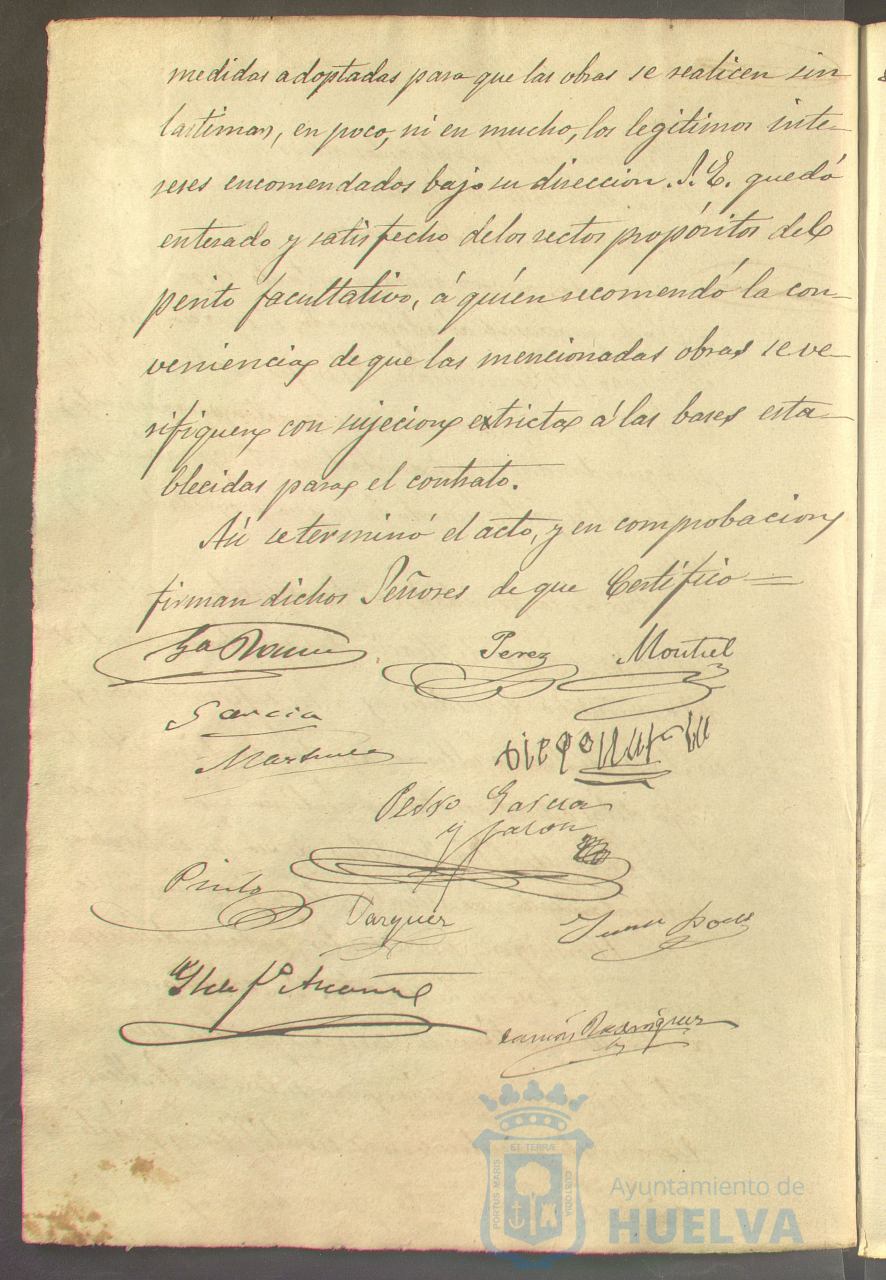 medidas adoptadas para que las obras se realicen sin
lastimar, en poco, ni en mucho, los legitimos inte-
reses encomendados bajo su direccion. S. E. quedó
enterado y satisfecho de los rectos propósitos del
perito facultativo, á quien recomendó la con-
veniencia de que las mencionadas obras se ve-
rifiquen con sujecion extricta á las bases esta-
blecidas para el contrato.
Así se terminó el acto, y en comprobacion
firman dichos Señores de que Certifico=
Perez Montiel
Garcia
Martinez
Pedro Garcia
y Jalon
Pinto
Vazquez
Juan
Ramón Rodriguez
PORTUS MARIS ET TERRÆ CUSTODIA
Ayuntamiento de
HUELVA